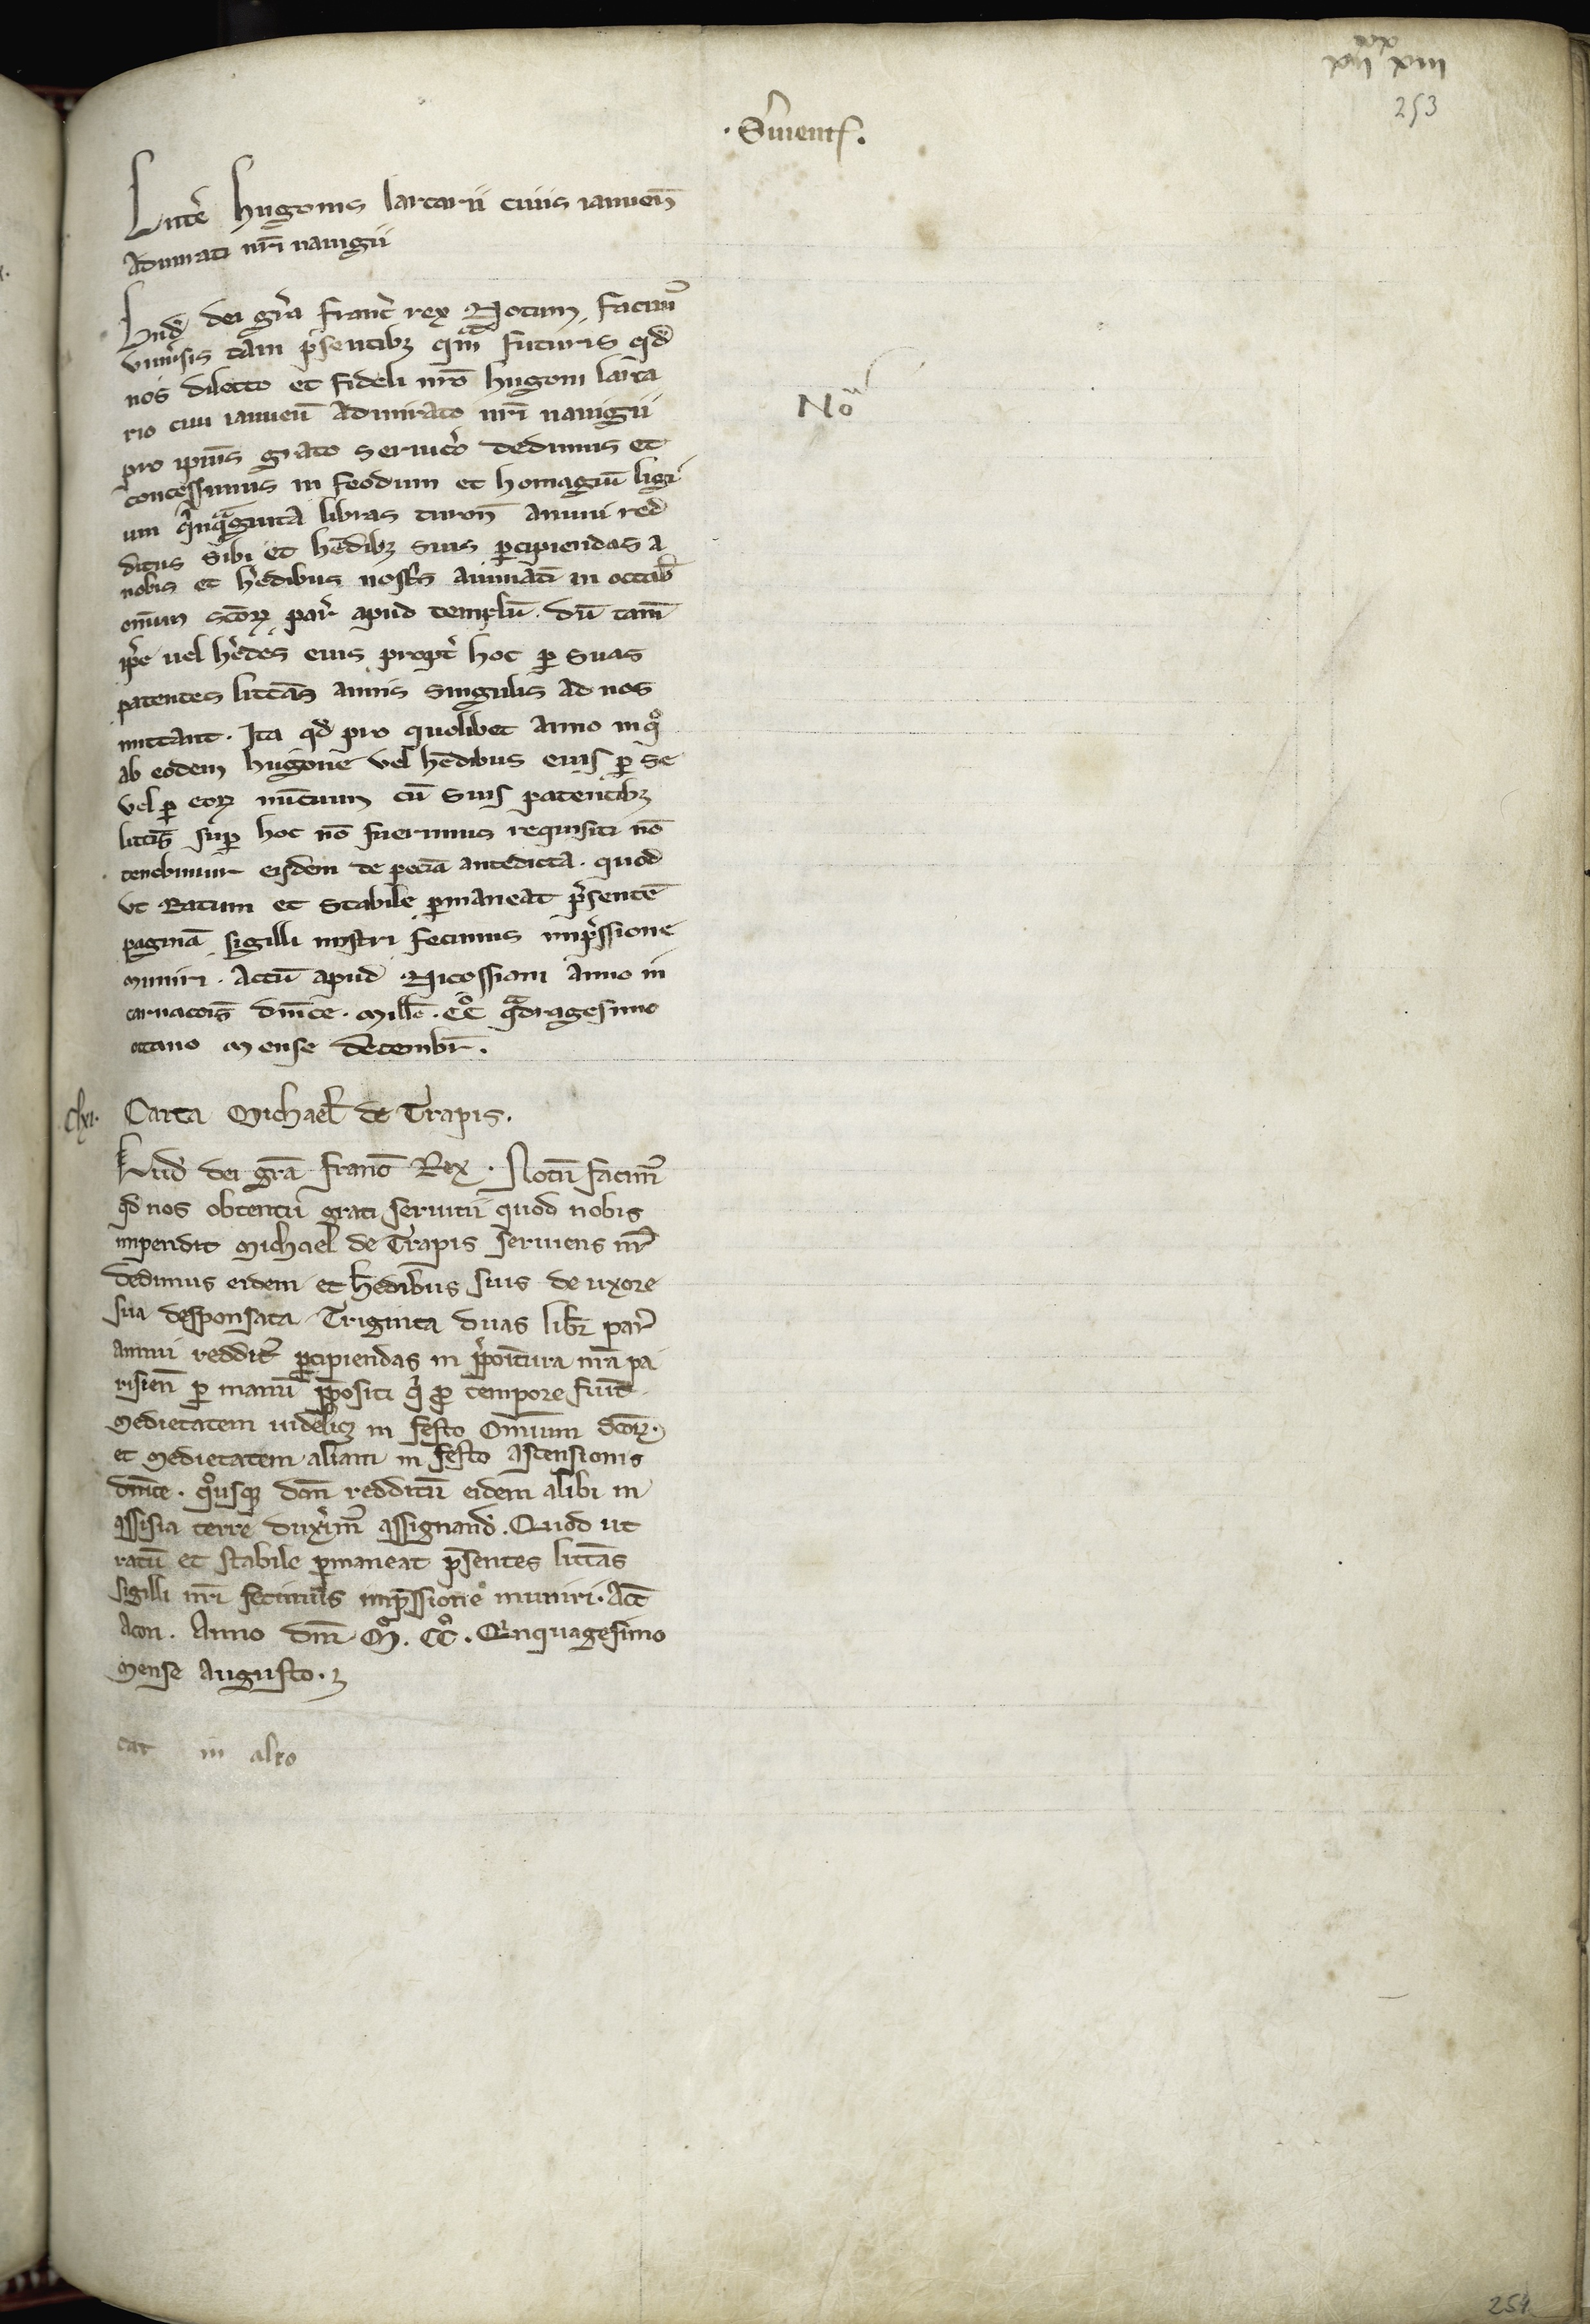 253
. S'uient .
Litt'e hugonis lartarii ciuis ianuen̄
admirati nr̄i nauigii
Lud' dei gr̄a franc̄ rex Notum facim'
vniu'sis tam p'sentibȝ qm̄ futuris qd'
nos dilecto et fideli nr̄o hugoni larta
rio ciui ianuen̄ admirato nr̄i nauigii
pro ipius grato seruic̄o dedimus et
concessimus in feodum et homagiū ligi
um q'nquaginta libras turon̄ annui red
ditus sibi et h'edibȝ suis p̱cipiendas a
nobis et h'edibus nost's annuatī in octab'
om̄ium sc̄orꝝ par' apud templū . dū tam̄
ip'e uel h'edes eius propt' hoc p̱ suas
patentes litt'as annis singulis ad nos
mittant . Ita qd' pro quolibet anno in qo
ab eodem hugone vel h'edibus eius p̱ se
vel p̱ eorꝝ nūcium cū suis patentibȝ
litt'is sup̱ hoc nō fuerimus requisiti nō
tenebimur eisdem de pec̄ia antedicta . quod
vt Ratum et stabile p̱maneat p'sentē
paginā sigilli nostri fecimus imp'ssione
muniri . actū apud Nicossiam anno in
carnacōis dn̄ice . mill'o . cc° q̄dragesimo
octauo mense decembr̄ .
clxi . Carta Michael' de Trapis .
Lud' dei gr̄a franc̄ Rex . Notū facim'
qd' nos obtentu grati seruitii quod nobis
impendit Michael' de Trapis seruiens nr̄
dedimus eidem et h'edibus suis de uxore
sua desponsata Triginta duas libr̄ par'
annui reddit' p̱cipiendas in p'poitura nr̄a pa
risien̄ p̱ manū p'positi q' ꝓ tempore fu'it
Medietatem uidelicȝ in festo Om̄ium sc̄orꝝ .
et Medietatem aliam in festo ascensionis
dn̄ice . quousqȝ dc̄m redditū eidem alibi in
assisia terre dux'im' assignand' . Quod ut
ratū et stabile p̱maneat p'sentes litt'as
sigilli nr̄i fecimus imp'ssione muniri . act̄
acon . Anno dn̄i M° . CC° . Q'nquagesimo
Mense augusto .
in alio
No
254